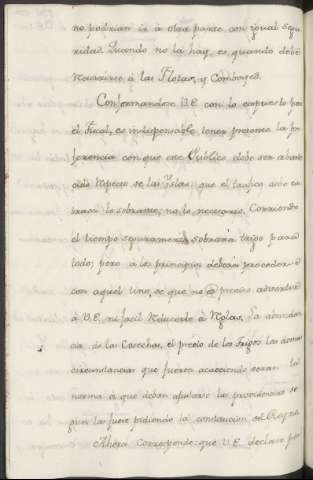 no podrian ir à otra parte con igual segu
ridad. Quando no la hay, es, quando debe
recurrirse à las Flotas, y Comboyes.
Conformandose V.E. con lo expuesto por
el Fiscal, es indispensable tener presente la pre
ferencia con que ese Público debe ser abaste
cido respecto de las Yslas: que el trafico debe ex
traer lo sobrante, no lo necesario. Corriendo
el tiempo seguramente sobrará trigo para
todo; pero à los principios deberá procederse
con aquel tino, de que no es preciso advertir
à V.E. ni facil reducirlo à Reglas. La abundan
cia de las Cosechas, el precio de los Trigos, las demas
circunstancias que fueren acaeciendo seran la
norma à que deban ajustarse las providencias se
gun las fuere pidiendo la constitucion del Reyno.
Ahora corresponde que V.E. declare por